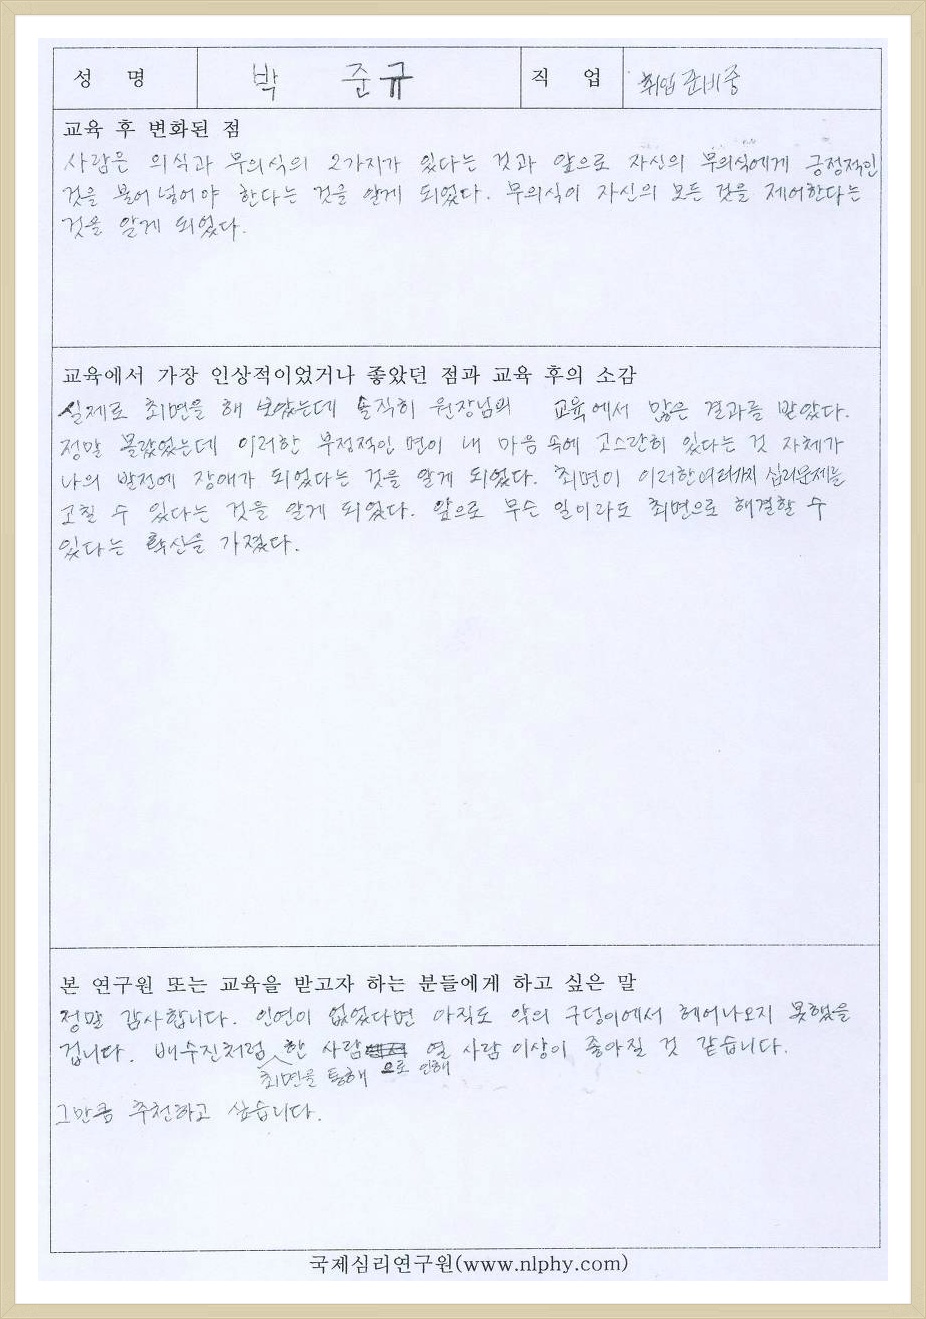 성 명 박 준규 직 업 취업준비중
교육 후 변화된 점
사람은 의식과 무의식의 2가지가 있다는 것과 앞으로 자신의 무의식에게 긍정적인
것을 불어넣어야 한다는 것을 알게 되었다. 무의식이 자신의 모든 것을 제어한다는
것을 알게 되었다.
교육에서 가장 인상적이었거나 좋았던 점과 교육 후의 소감
실제로 최면을 해 보았는데 솔직히 원장님의 교육에서 많은 결과를 받았다.
정말 몰랐었는데 이러한 부정적인 면이 내 마음 속에 고스란히 있다는 것 자체가
나의 발전에 장애가 되었다는 것을 알게 되었다. 최면이 이러한 여러가지 심리문제를
고칠 수 있다는 것을 알게 되었다. 앞으로 무슨 일이라도 최면으로 해결할 수
있다는 확신을 가졌다.
본 연구원 또는 교육을 받고자 하는 분들에게 하고 싶은 말
정말 감사합니다. 인연이 없었다면 아직도 악의 구덩이에서 헤어나오지 못했을
겁니다. 배수진처럼 한 사람 열 사람 이상이 좋아질 것 같습니다.
최면을 통해 으로 인해
그만큼 추천하고 싶습니다.
국제심리연구원(www.nlphy.com)